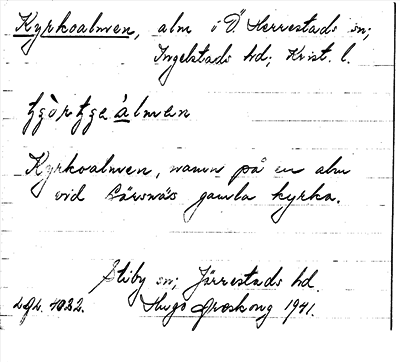 Kyrkoalmen, alm i Ö. Herrestads sn;
Ingelstads hd; Krist. l.
Kyrkoalmen, namn på en alm
vid Bärsnäs gamla kyrka.
Stiby sn; Järrestads hd.
4032. Hugo 1941.